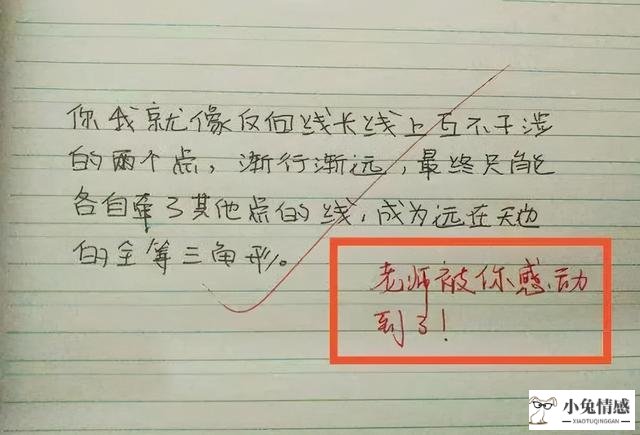 你我就像反向线长线上互不干涉
的两个点，渐行渐远，最终只能
各自牵了其他点的线，成为远在天边
的全等三角形。
老师被你感动
到了！
小兔情感
XIAOTUQINGGAN